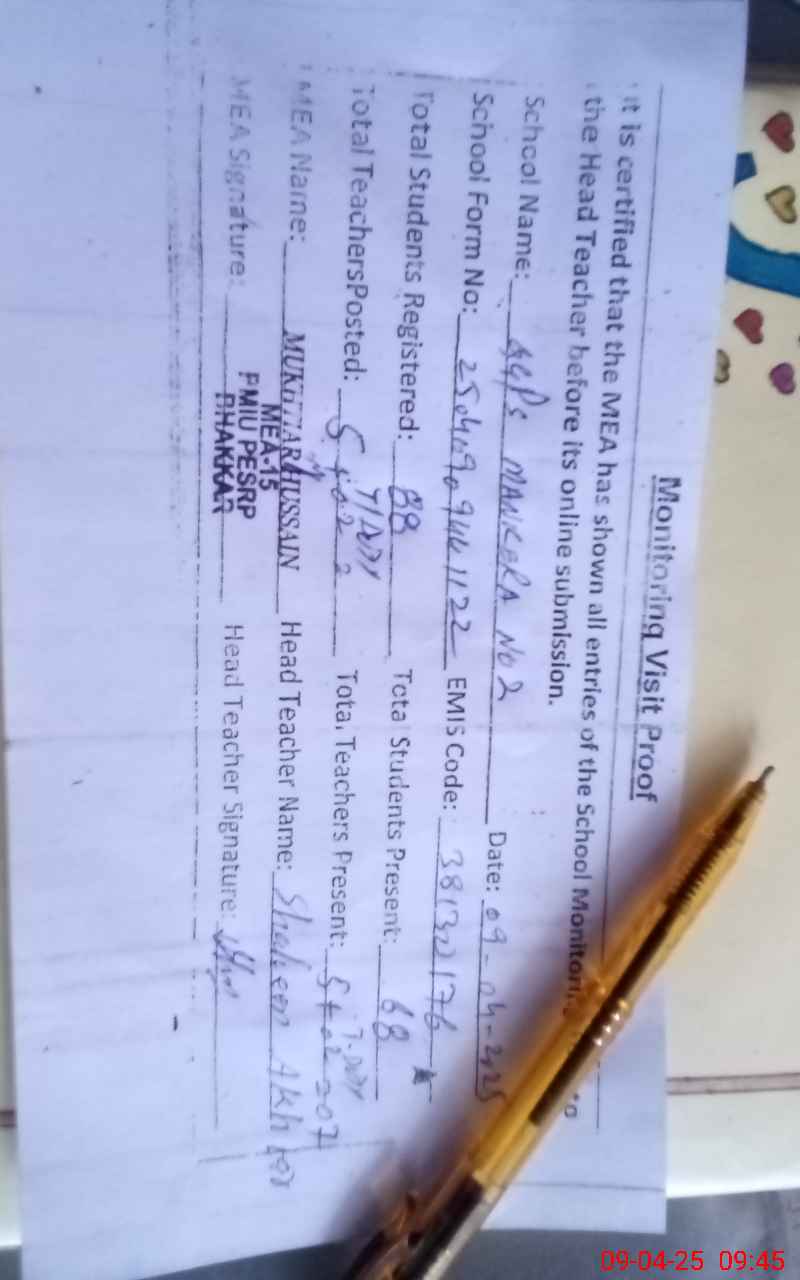 Monitoring Visit Proof
It is certified that the MEA has shown all entries of the School Monitori to
the Head Teacher before its online submission.
School Name: GGPS MANKERA NO 2 Date: 09-04-2025
School Form No: EMIS Code:
Total Students Registered: 88 Total Students Present: 68
Total TeachersPosted: Total Teachers Present:
MEA Name: MUKHTIAR HUSSAIN Head Teacher Name: Shaheen Akhtar
MEA-15
PMIU PESRP
BHAKKAR
MEA Signature: Head Teacher Signature:
09-04-25 09:45